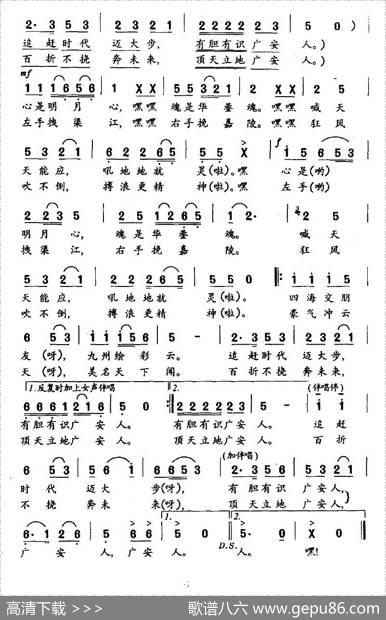 2· 3 5 3 | 2 3 2 1 | 2 2 2 2 2 3 | 5 0 )
追赶时代 迈大步, 有胆有识广安 人。)
百折不挠 奔未来, 顶天立地广安 人。)
mf
1 1 1 1 6 5 6 | 1 X X | 5 5 1 6 5 | 2 · X X | 2 5
心是明月 心,嘿嘿 魂是华蓥 魂。嘿嘿 喊天
左手挽渠 江,嘿嘿 右手挽嘉 陵。嘿嘿 狂风
5 3 2 1 | 6 2 2 6 5 | 5 5 X | 1 5 6 5 3
天能应, 吼地地就 灵(啦)。嘿 心是(哟)
吹不倒, 搏浪更精 神(啦)。嘿 左手(哟)
2 2 3 5 | 2 5 1 2 6 5 | 1 2· | 2 5
明月心, 魂是华蓥 魂。 喊天
挽渠江, 右手挽嘉 陵。 狂风
5 3 2 1 | 2 2 2 6 5 | 5 5 0 | 1 1 1 5
天能应, 吼地地就 灵(啦)。 四海交朋
吹不倒, 搏浪更精 神(啦)。 豪气冲云
6 5 3 | 1 1 1 5 6 | 5 - | 2· 3 5 3 | 2 3 2 1
友(呀), 九州绘彩 云。 追赶时代 迈大步,
天(呀), 美名天下 闻。 百折不挠 奔未来,
1.反复时加上女声伴唱 2. (伴唱停)
6 6 6 1 2 1 6 | 5 0 :‖ 2 2 2 2 2 3 | 5 0 | 1 1
有胆有识广安 人。 有胆有识广安 人。 追赶
顶天立地广安 人。 顶天立地广安 人。 百折
(加伴唱)
6 5 3 | 5 6 1 | 6 6 5 3 | 2· 3 5 3 | 5 3 2 1
时代 迈大 步(呀), 有胆有识 广安人,
不挠 奔未 来(呀), 顶天立地 广安人,
1. 2.
6· 1 2 6 | 5 6 | 5 0 | 5 · | X 0
广安 人,广安 人。 D.S. 人。 嘿!
高清下载 >>> 歌谱八六 www.gepu86.com